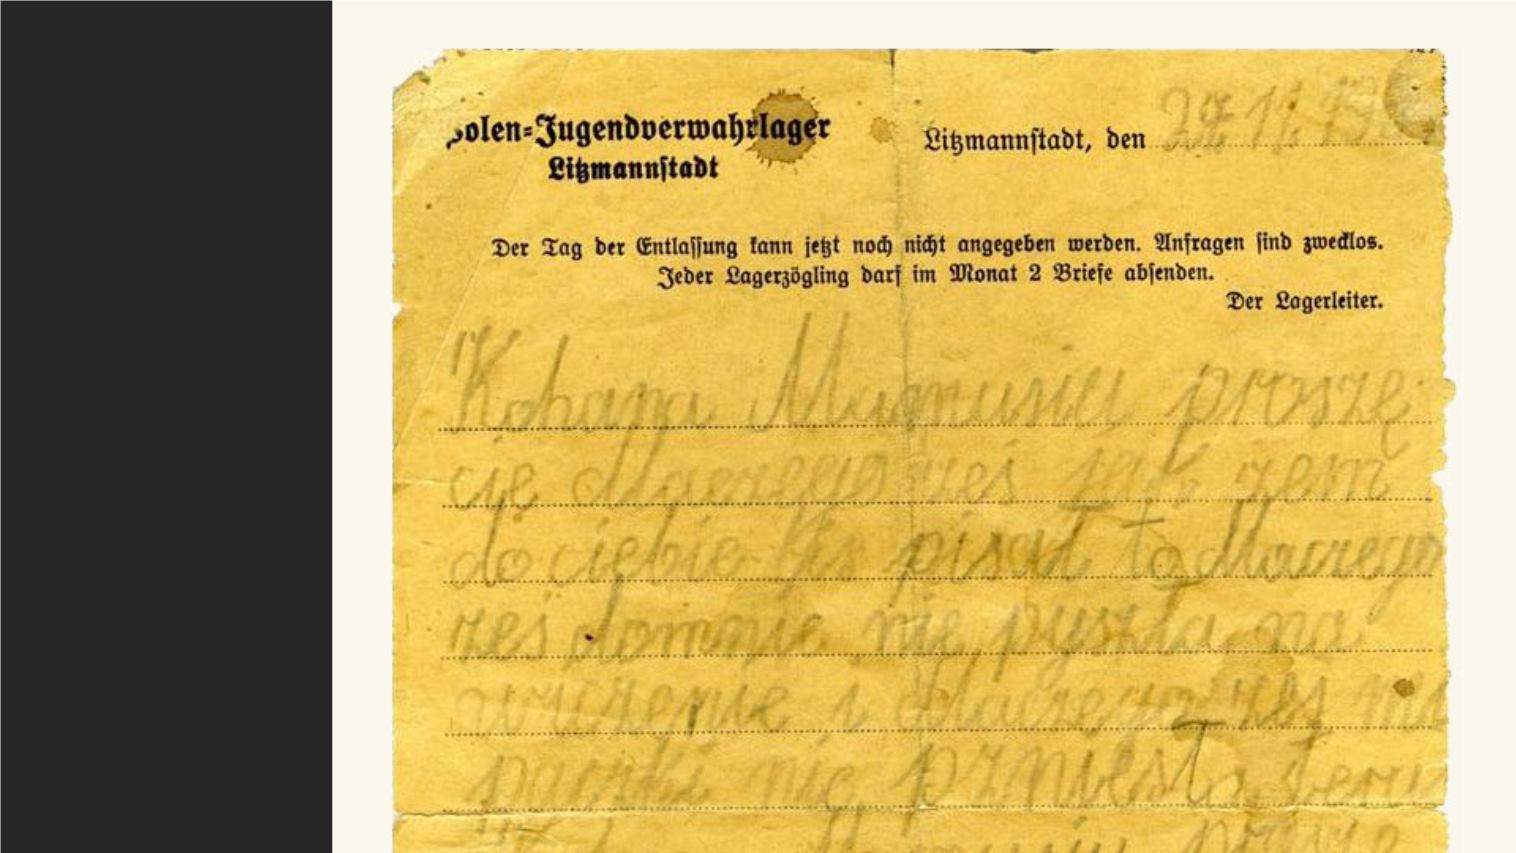 Polen-Jugendverwahrlager
Litzmannstadt
Litzmannstadt, den 27.11.43
Der Tag der Entlassung kann jetzt noch nicht angegeben werden. Anfragen sind zwecklos.
Jeder Lagerzögling darf im Monat 2 Briefe absenden.
Der Lagerleiter.
Kohana Mamusiu proszę
cię dlaczego żeś jak żem
do ciebie pisał to dlaczego
żeś domnie nie pyszła na
i dlaczego żeś
paczki nie